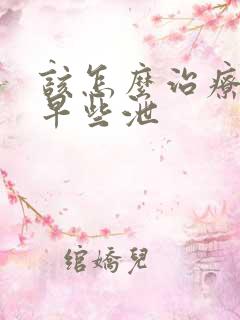 該怎麼治療
早些泄
綰嬌兒